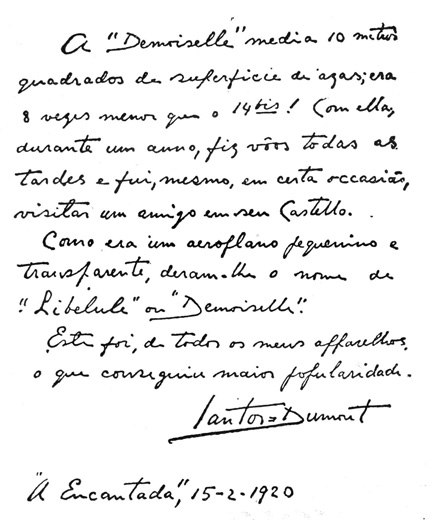 A "Demoiselle" media 10 metros
quadrados de superficie de azas; era
8 vezes menor que o 14 bis! Com ella,
durante um anno, fiz vôos todas as
tardes e fui, mesmo, em certa occasião,
visitar um amigo em seu Castello.
Como era um aeroplano pequenino e
transparente, deram-lhe o nome de
"Libelule" ou "Demoiselle".
Este foi, de todos os meus apparelhos,
o que conseguiu maior popularidade.
Santos=Dumont
"A Encantada", 15-2-1920